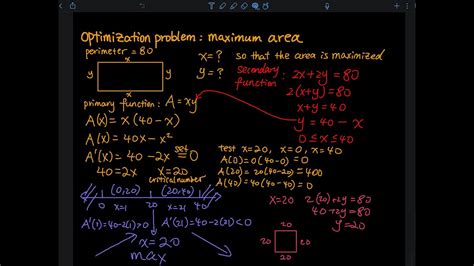 Optimization problem : maximum area
perimeter = 80
x
y
y
x
x = ?
y = ?
so that the area is maximized
secondary function :
2x+2y = 80
2(x+y) = 80
x+y = 40
y = 40 - x
0 ≤ x ≤ 40
primary function : A = xy
A(x) = x (40-x)
A(x) = 40x - x²
A'(x) = 40 - 2x set = 0
40 = 2x x = 20
critical number
(0,20) (20,40)
0 x=1 20 x=21 40
A'(1) = 40-2(1) > 0
A'(21) = 40-2(21) < 0
x = 20
max
test x=20, x=0, x=40
A(0) = 0(40-0) = 0
A(20) = 20(40-20) = 400
A(40) = 40(40-40) = 0
x=20
2(20)+2y = 80
40+2y = 80
y = 20
20
20 20
20